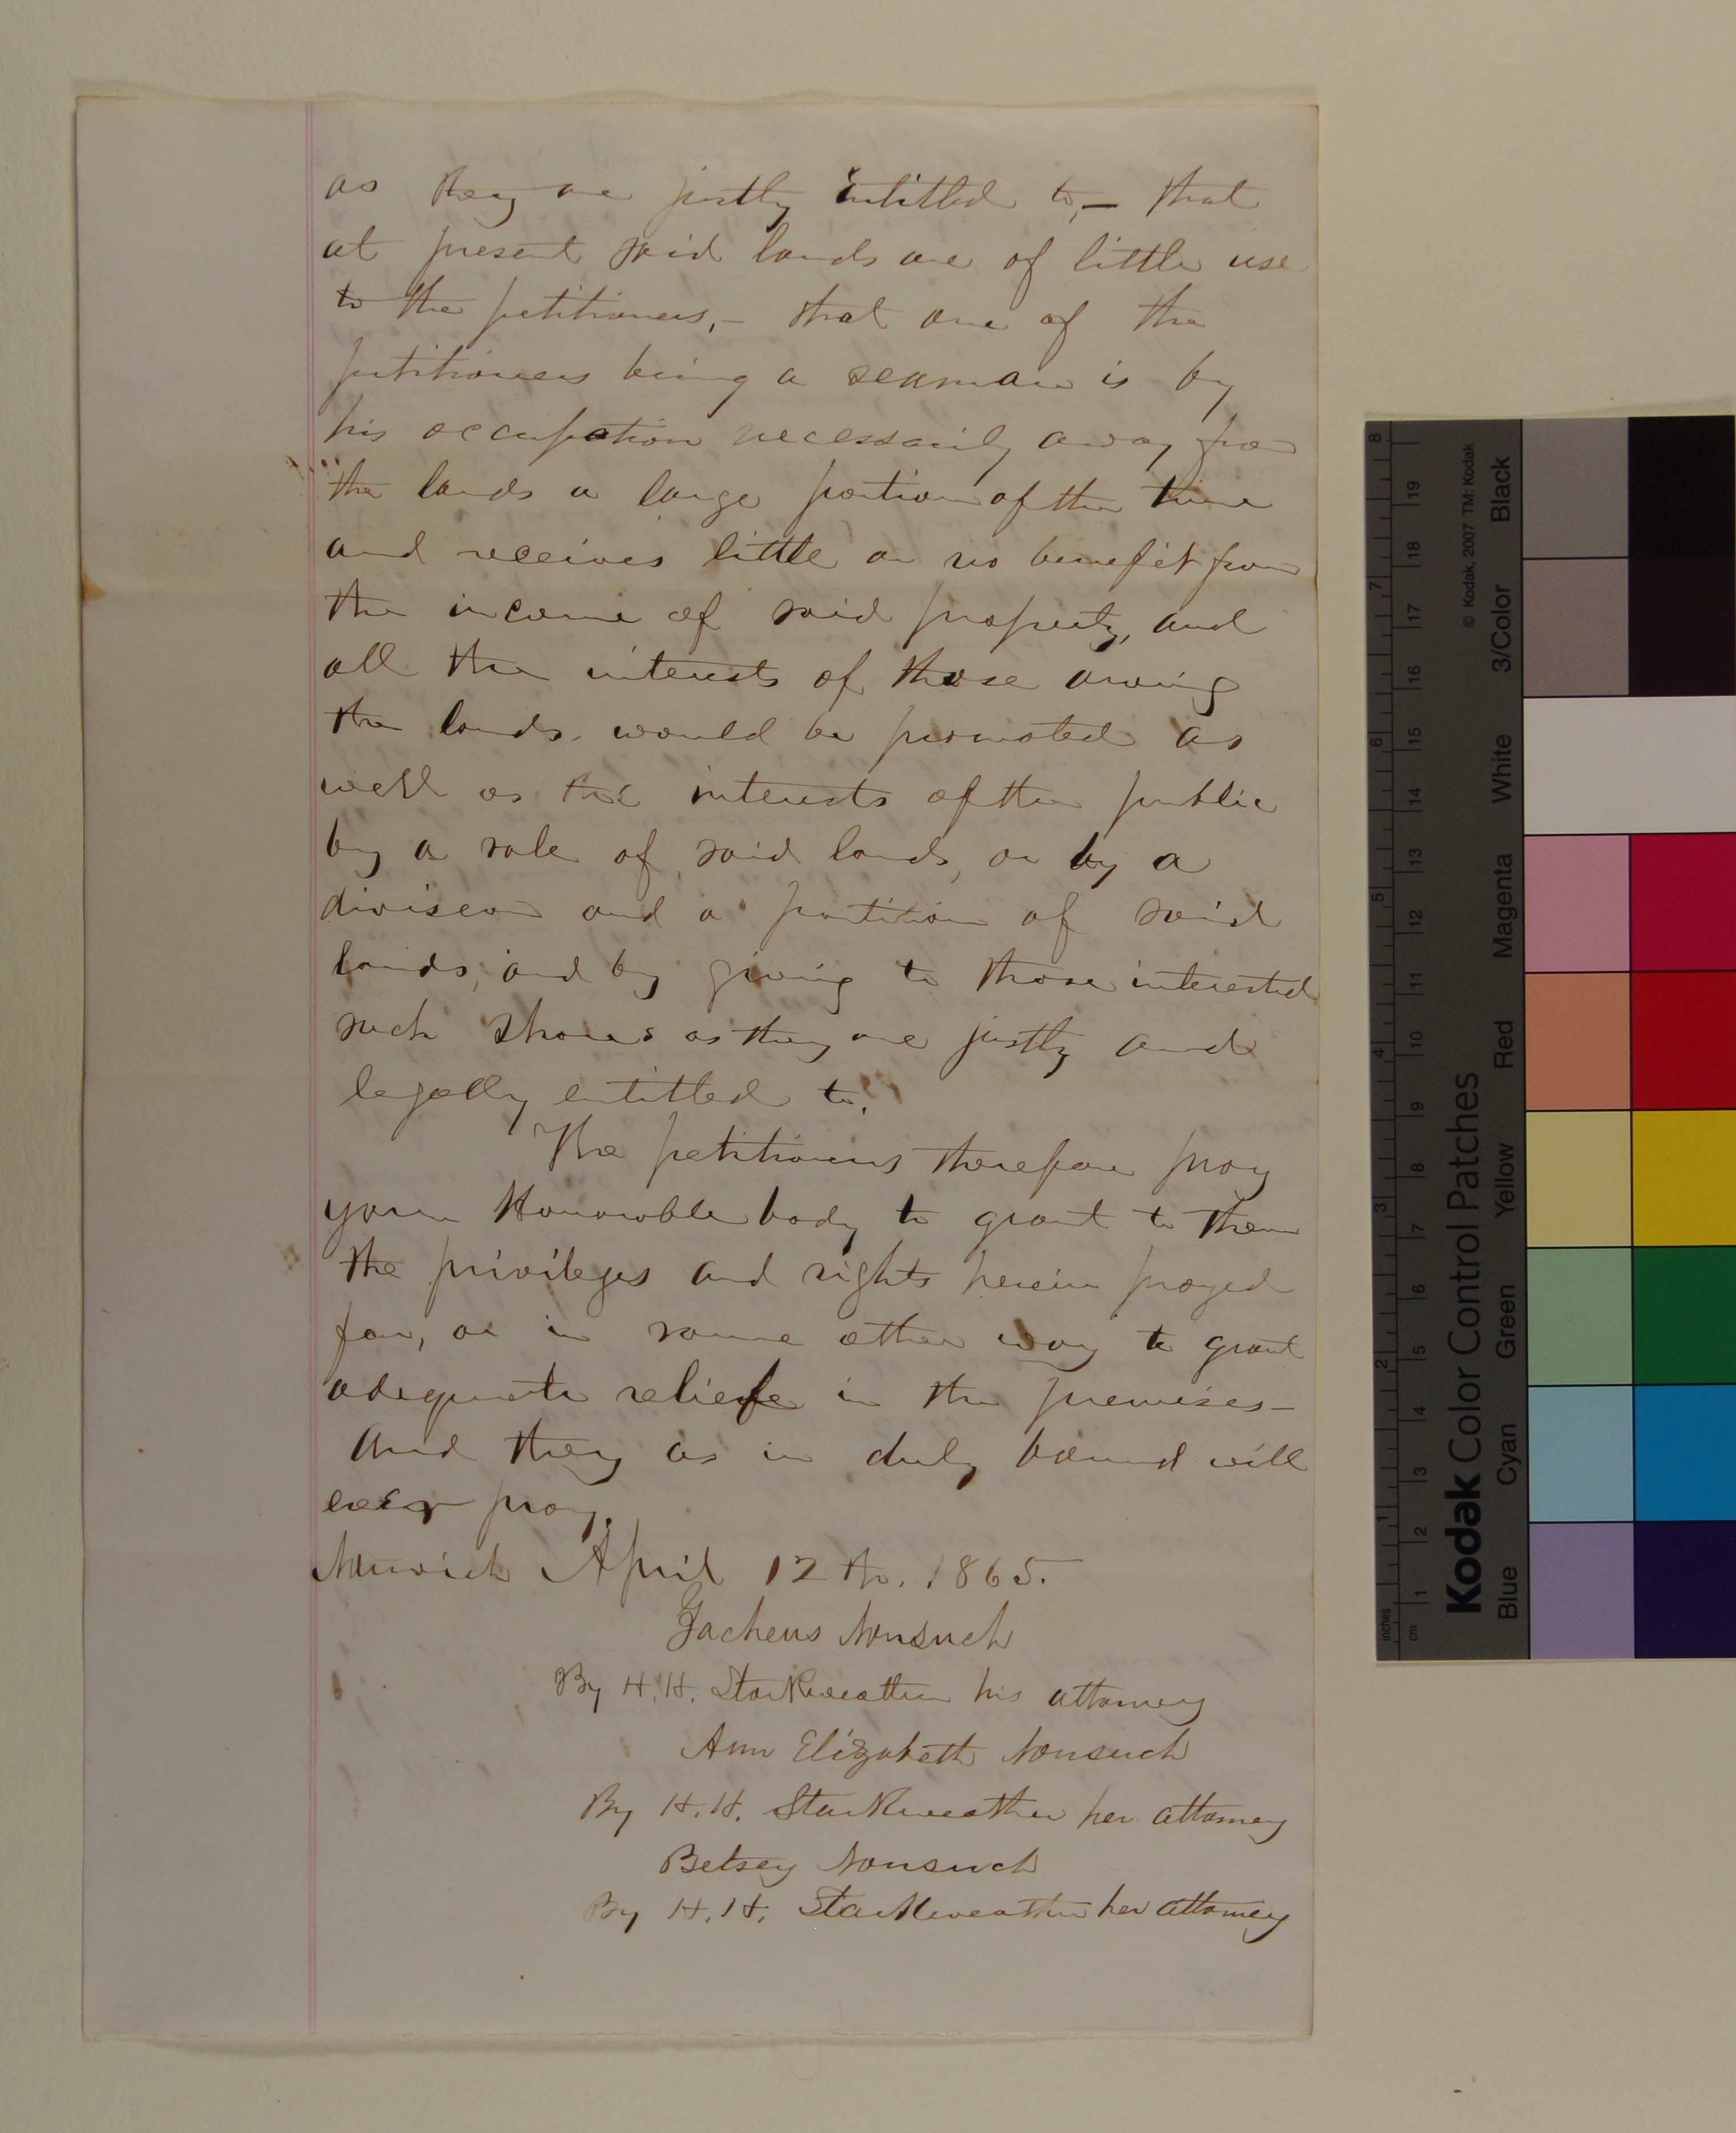 as they are justly entitled to,— that
at present said lands are of little use
to the petitioners,— that one of the
petitioners being a seaman is by
his occupation necessarily away from
the lands a large portion of the time
and receives little or no benefit from
the income of said property, and
all the interests of those owning
the lands would be promoted as
well as the interests of the public
by a sale of said lands, or by a
division and a partition of said
lands, and by giving to those interested
such shares as they are justly and
legally entitled to.
The petitioners therefore pray
your Honorable body to grant to them
the privileges and rights herein prayed
for, or in some other way to grant
adequate relief in the premises—
And they as in duty bound will
ever pray.
Norwich April 12th. 1865.
Zacheus Nonsuch
By H. H. Starkweather his attorney
Ann Elizabeth Nonsuch
By H. H. Starkweather her attorney
Betsey Nonsuch
By H. H. Starkweather her attorney
Kodak Color Control Patches
© Kodak, 2007 TM: Kodak
Blue Cyan Green Yellow Red Magenta White 3/Color Black
inches 1 2 3 4 5 6 7 8
cm 1 2 3 4 5 6 7 8 9 10 11 12 13 14 15 16 17 18 19